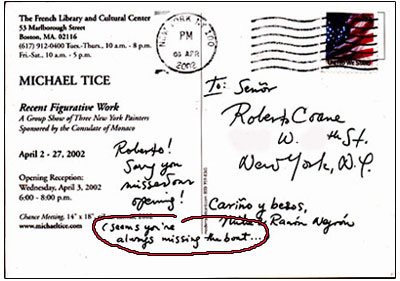 The French Library and Cultural Center
53 Marlborough Street
Boston, MA. 02116
(617) 912-0400 Tues.-Thurs., 10 a.m. - 8 p.m.
Fri.-Sat., 10 a.m. - 5 p.m.
MICHAEL TICE
Recent Figurative Work
A Group Show of Three New York Painters
Sponsored by the Consulate of Monaco
April 2 - 27, 2002
Opening Reception:
Wednesday, April 3, 2002
6:00 - 8:00 p.m.
Chance Meeting, 14" x 18", 2002
www.michaeltice.com
Roberto!
Sorry you
missed our
opening!
(seems you're
always missing the boat...
NEW YORK NY 100
PM
APR
2002
To: Señor
Roberto Coane
W. th St.
New York, N.Y.
Cariño y besos,
Mike & Ramón Negrón